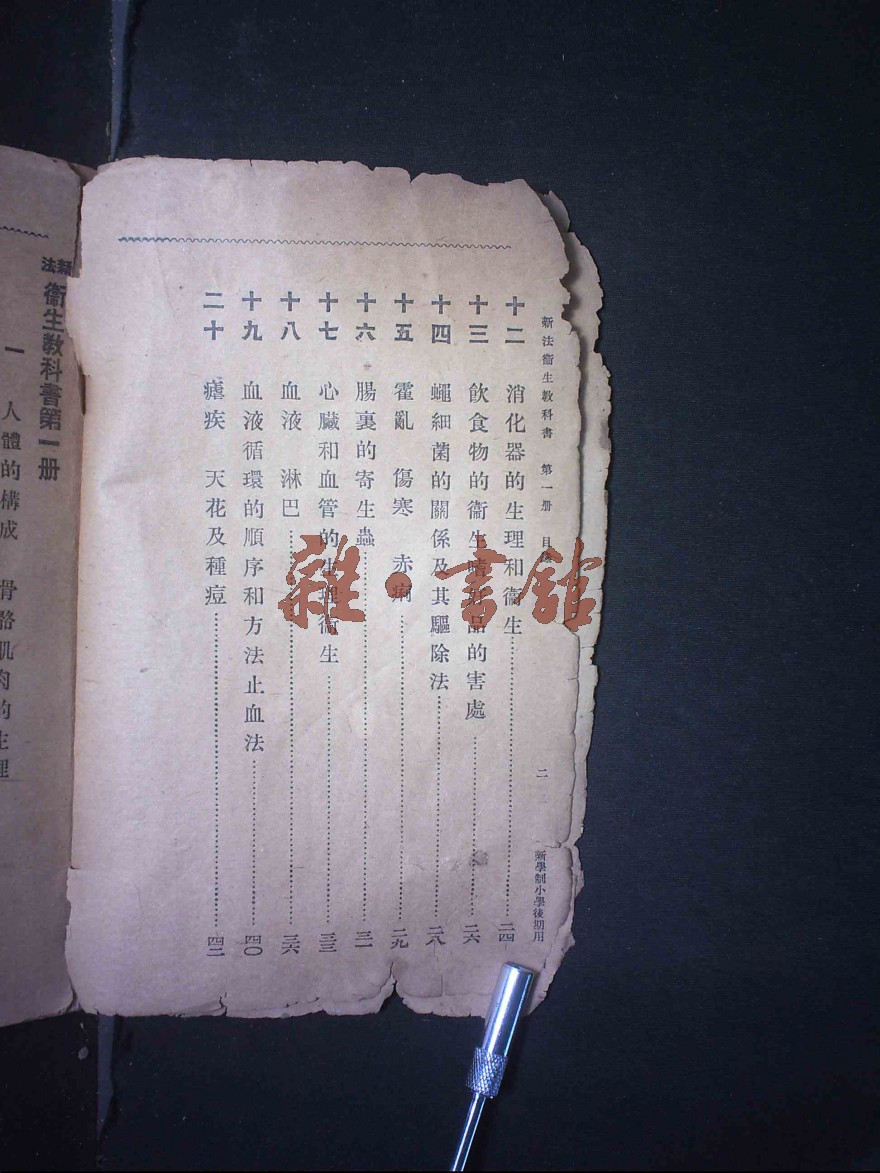 新法衞生教科書 第一册 目
二
新學制小學後期用
十二 消化器的生理和衞生 二四
十三 飲食物的衞生嗜好品的害處 二六
十四 蠅細菌的關係及其驅除法 二八
十五 霍亂 傷寒 赤痢 二九
十六 腸裏的寄生蟲 三一
十七 心臟和血管的生理衞生 三三
十八 血液 淋巴 三六
十九 血液循環的順序和方法止血法 四〇
二十 瘧疾 天花及種痘 四二
新法 衞生教科書第一册
一 人體的構成 骨骼肌肉的生理
雜·書館